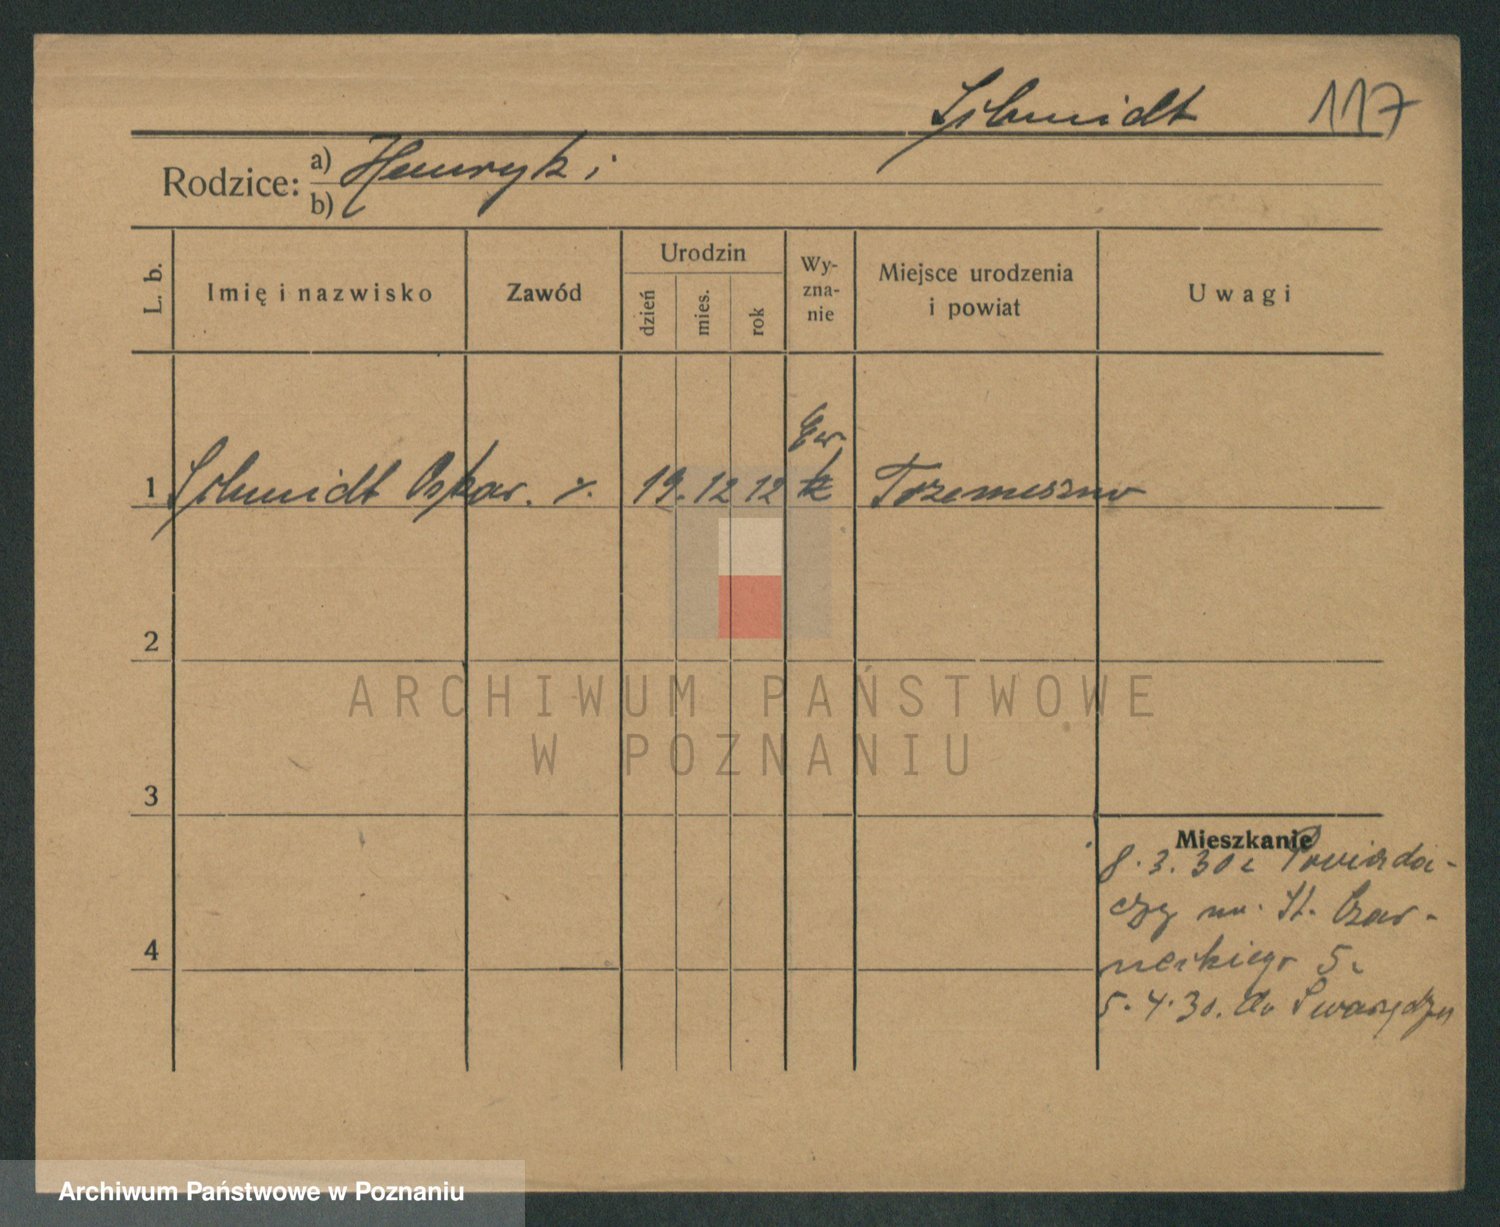 Schmidt 117
Rodzice: a) Henryk i
b)
L. b.
Imię i nazwisko
Zawód
Urodzin
dzień
mies.
rok
Wy-
zna-
nie
Miejsce urodzenia
i powiat
Uwagi
Ew.
1 Schmidt Oskar. r. 19. 12 12 k Trzemeszno
2
ARCHIWUM PAŃSTWOWE
W POZNANIU
3
Mieszkanie
8.3.30 z
czy ul. St. Czar-
neckiego 5.
5.4.30. do Swarzędzu
4
Archiwum Państwowe w Poznaniu